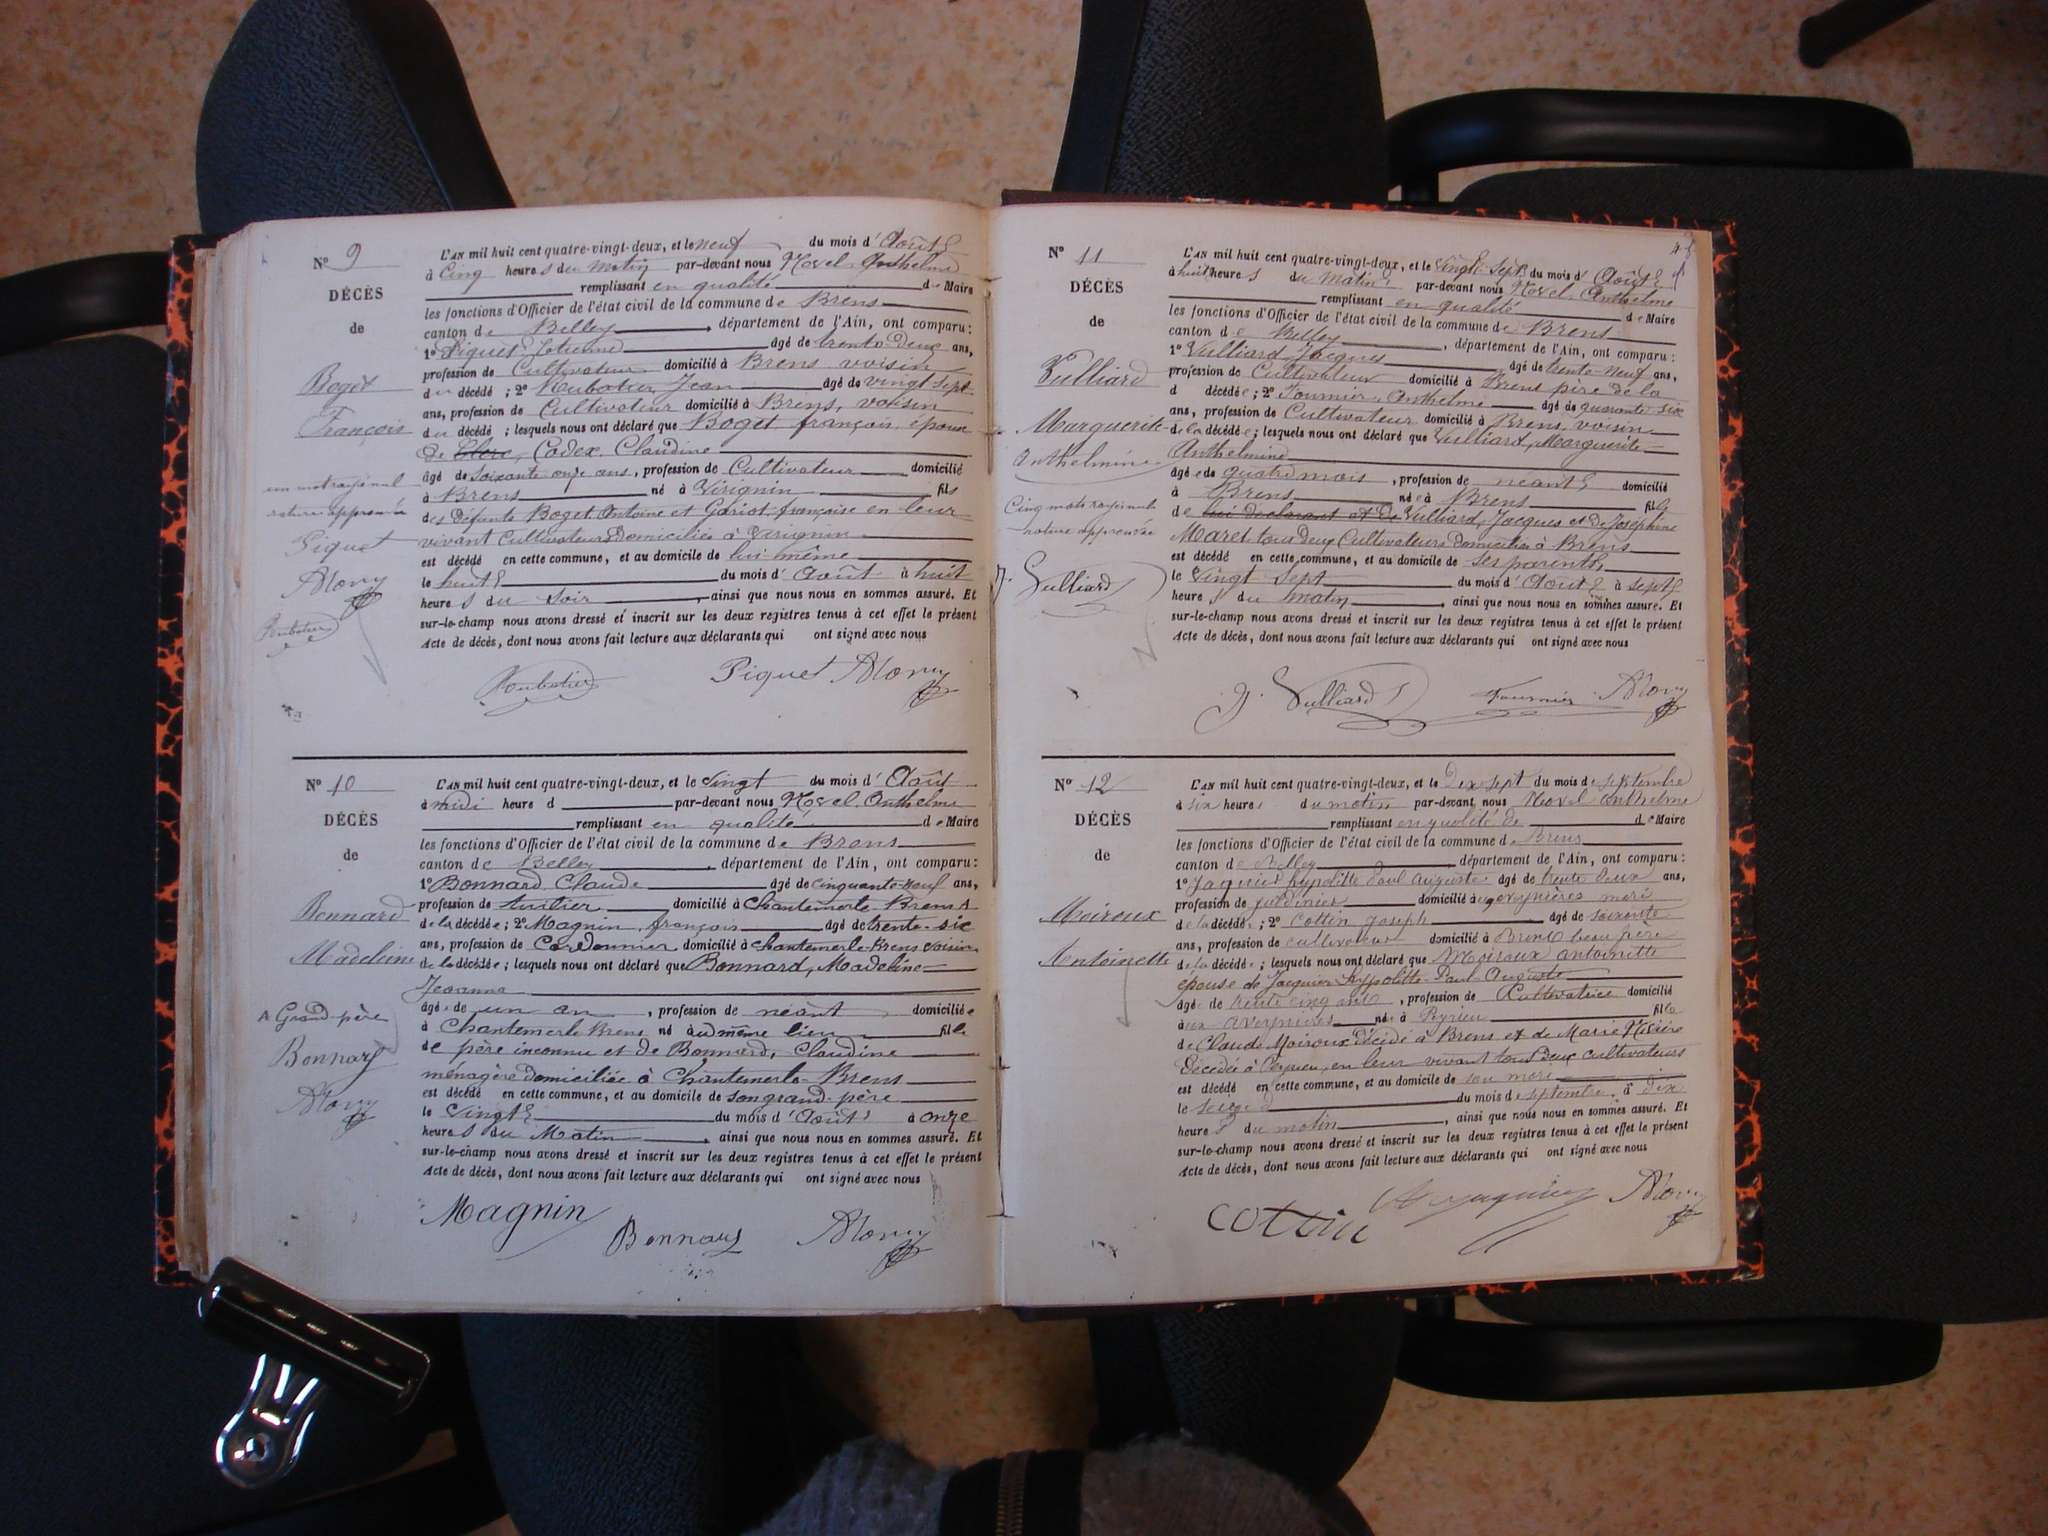 Nº 9
DÉCÈS
de
Boget
François
un mot rayé nul
rature approuvée
Piquet
L'AN mil huit cent quatre-vingt-deux, et le neuf du mois d'Août
à cinq heures du matin par-devant nous Novel Anthelme
remplissant en qualité de Maire
les fonctions d'Officier de l'état civil de la commune de Brens
canton de Belley, département de l'Ain, ont comparu :
1º Piquet Etienne âgé de trente-deux ans,
profession de Cultivateur domicilié à Brens voisin
du décédé ; 2º Roubatier Jean âgé de vingt sept
ans, profession de Cultivateur domicilié à Brens, voisin
du décédé ; lesquels nous ont déclaré que Boget françois, époux
de Clerc, Codex Claudine
âgé de soixante onze ans, profession de Cultivateur domicilié
à Brens né à Virignin fils
des défunts Boget Antoine et Gariot françoise en leur
vivant Cultivateurs domiciliés à Virignin
est décédé en cette commune, et au domicile de lui même
le huit du mois d'Août à huit
heures du soir, ainsi que nous nous en sommes assuré. Et
sur-le-champ nous avons dressé et inscrit sur les deux registres tenus à cet effet le présent
Acte de décès, dont nous avons fait lecture aux déclarants qui ont signé avec nous
Roubatier Piquet
Nº 10
DÉCÈS
de
Bonnard
Madeleine
A Grand-père
Bonnard
L'AN mil huit cent quatre-vingt-deux, et le vingt du mois d'Août
à midi heure d par-devant nous Novel, Anthelme
remplissant en qualité de Maire
les fonctions d'Officier de l'état civil de la commune de Brens
canton de Belley, département de l'Ain, ont comparu :
1º Bonnard, Claude âgé de cinquante-neuf ans,
profession de domicilié à Chantemerle-Brens A
de la décédée ; 2º Magnin, françois âgé de trente-six
ans, profession de Cordonnier domicilié à Chantemerle-Brens voisin
de la décédée ; lesquels nous ont déclaré que Bonnard, Madeleine
Jeanne
âgée de un an, profession de néant domiciliée
à Chantemerle Brens né au même lieu fille
de père inconnu et de Bonnard, Claudine
ménagère domiciliée à Chantemerle-Brens
est décédé en cette commune, et au domicile de son grand-père
le vingt du mois d'Août à onze
heures du Matin, ainsi que nous nous en sommes assuré. Et
sur-le-champ nous avons dressé et inscrit sur les deux registres tenus à cet effet le présent
Acte de décès, dont nous avons fait lecture aux déclarants qui ont signé avec nous
Magnin Bonnard
Nº 11
DÉCÈS
de
Vulliard
Marguerite
Anthelmine
Cinq mots rayés nuls
rature approuvée
J. Vulliard
L'AN mil huit cent quatre-vingt-deux, et le vingt-sept du mois d'Août
à huit heures du matin par-devant nous Novel, Anthelme
remplissant en qualité de Maire
les fonctions d'Officier de l'état civil de la commune de Brens
canton de Belley, département de l'Ain, ont comparu :
1º Vulliard, Jacques âgé de trente-neuf ans,
profession de Cultivateur domicilié à Brens père de la
d décédée ; 2º Fournier, Anthelme âgé de quarante six
ans, profession de Cultivateur domicilié à Brens, voisin
de la décédée ; lesquels nous ont déclaré que Vulliard, Marguerite
Anthelmine
âgée de quatre mois, profession de néant domicilié
à Brens née à Brens fille
de lui déclarant et de Vulliard, Jacques et de Joséphine
Maret tous deux Cultivateurs domiciliés à Brens
est décédé en cette commune, et au domicile de ses parents
le vingt sept du mois d'Août à sept
heures du matin, ainsi que nous nous en sommes assuré. Et
sur-le-champ nous avons dressé et inscrit sur les deux registres tenus à cet effet le présent
Acte de décès, dont nous avons fait lecture aux déclarants qui ont signé avec nous
J. Vulliard Fournier
Nº 12
DÉCÈS
de
Moiroux
Antoinette
L'AN mil huit cent quatre-vingt-deux, et le Dix sept du mois de septembre
à six heures du matin par-devant nous Novel Anthelme
remplissant en qualité de de Maire
les fonctions d'Officier de l'état civil de la commune de Brens
canton de Belley, département de l'Ain, ont comparu :
1º Jaquier hypolitte Paul Auguste âgé de trente deux ans,
profession de jardinier domicilié à aveyrières mari
de la décédée ; 2º Cottin joseph âgé de soixante
ans, profession de cultivateur domicilié à Brens beau père
de la décédée ; lesquels nous ont déclaré que Moiroux antoinette
épouse de Jacquier hyppolitte Paul Auguste
âgée de trente cinq ans, profession de Cultivatrice domicilié
aux aveyrières née à Peyrieu fille
de Claude Moiroux décédé à Brens et de Marie
décédée à Peyrieu, en leur vivant tous deux cultivateurs
est décédé en cette commune, et au domicile de son mari
le seize du mois de septembre, à dix
heures du matin, ainsi que nous nous en sommes assuré. Et
sur-le-champ nous avons dressé et inscrit sur les deux registres tenus à cet effet le présent
Acte de décès, dont nous avons fait lecture aux déclarants qui ont signé avec nous
cottin